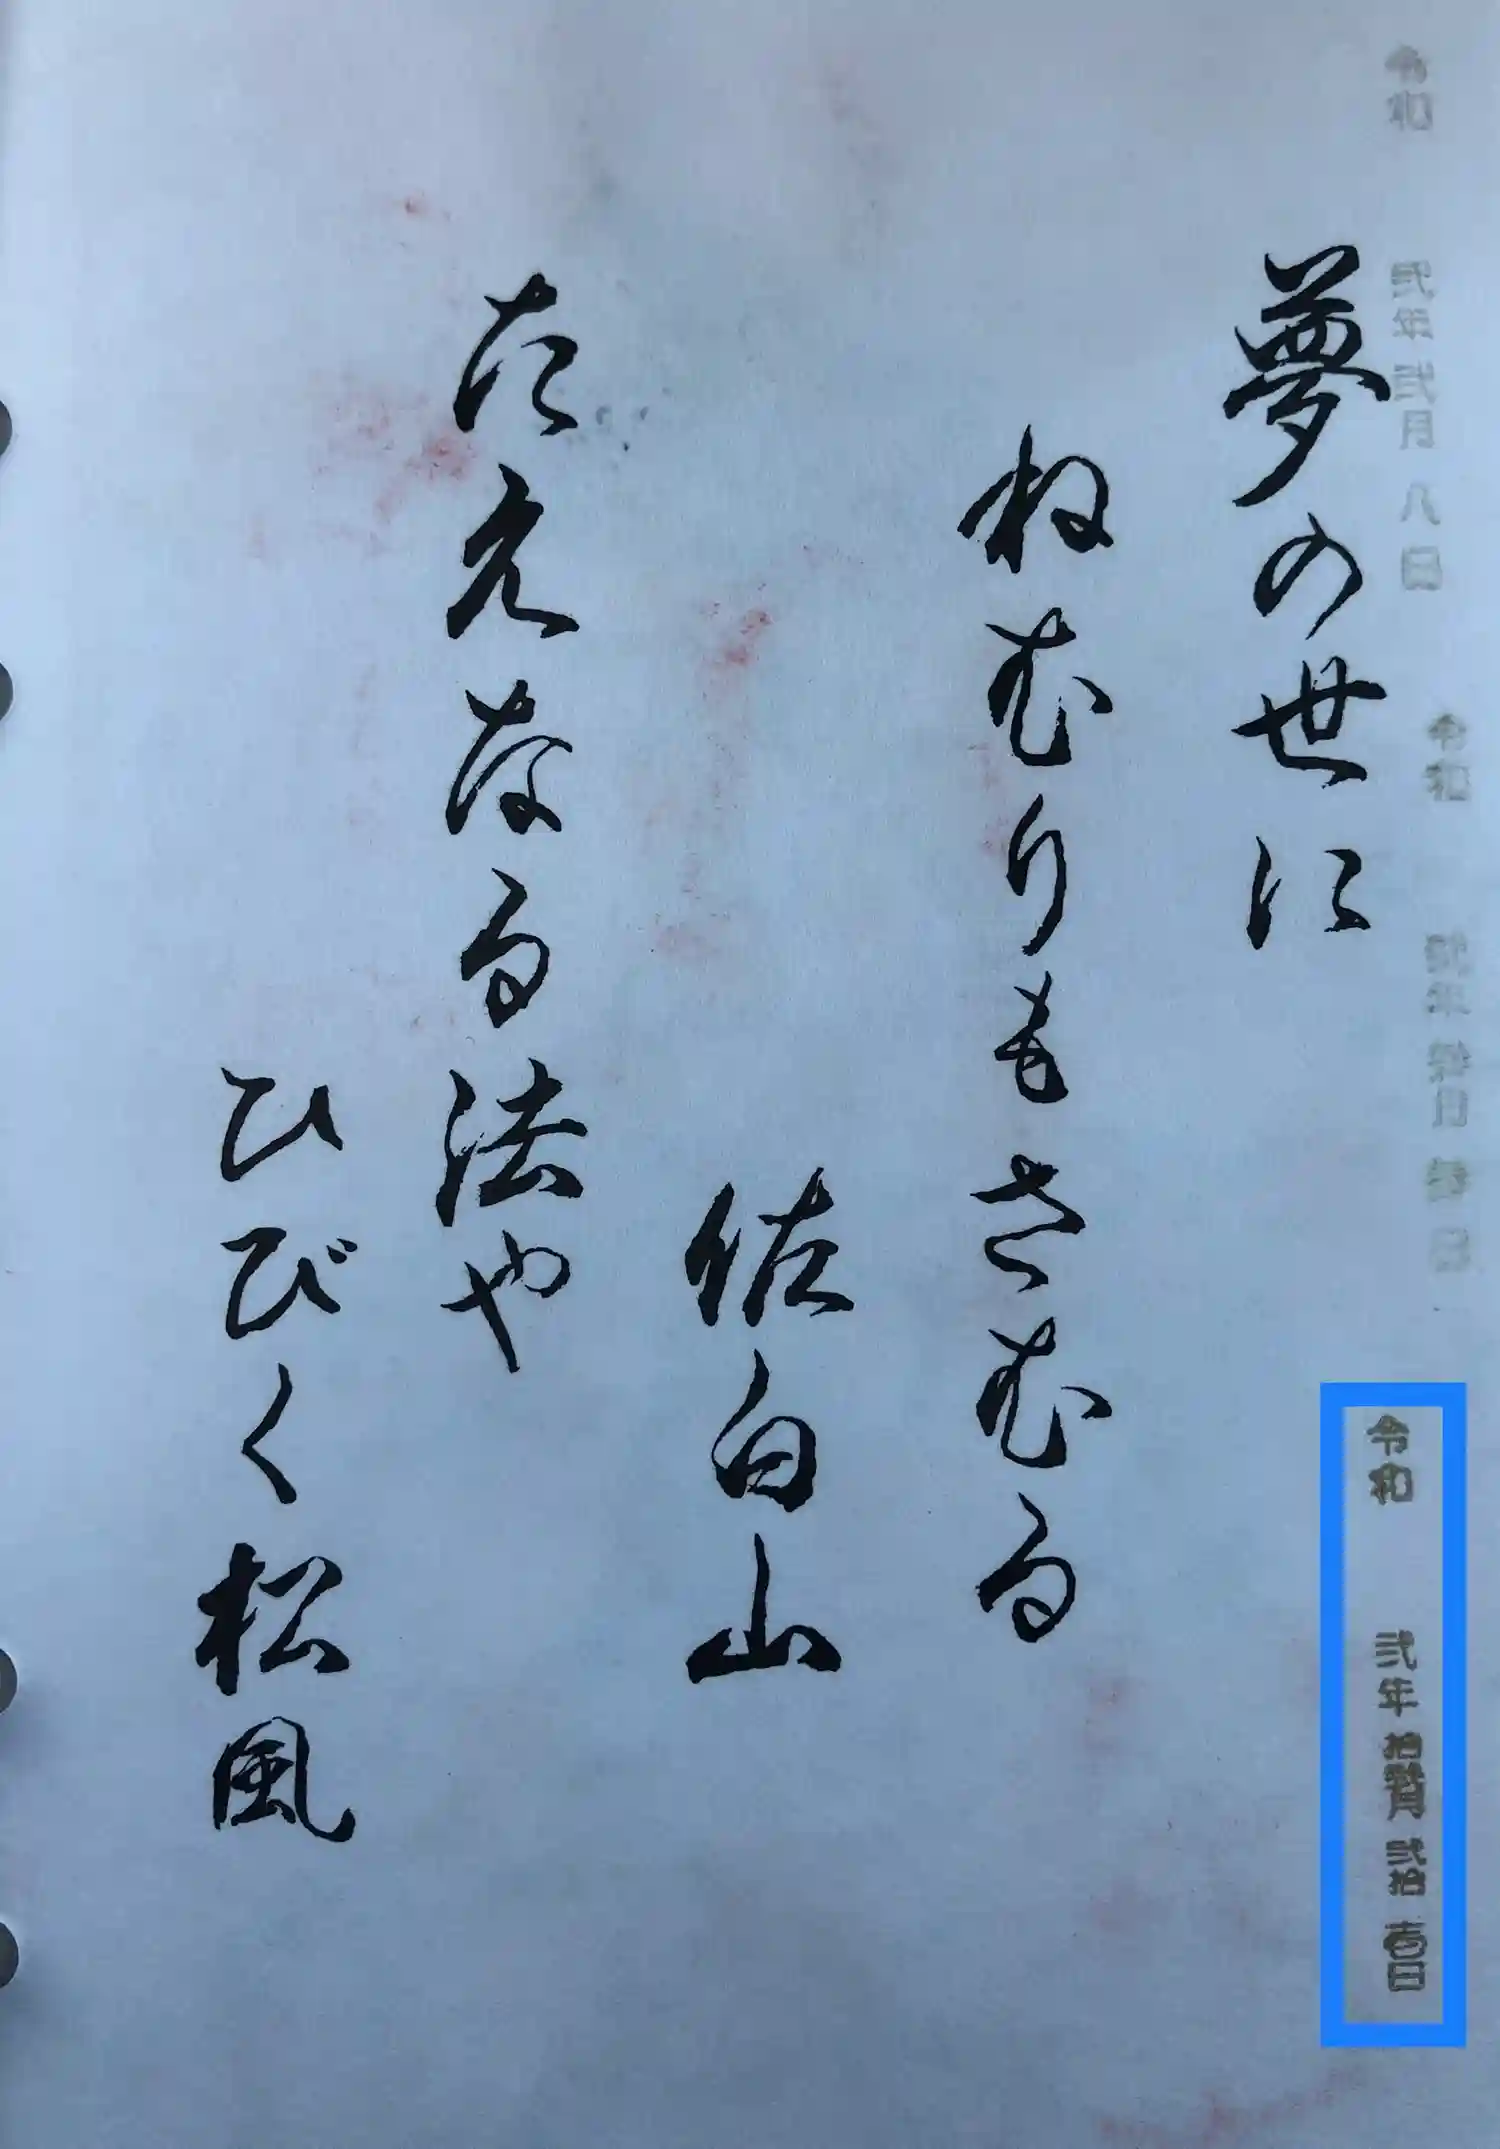 令和 弐年弐月八日
令和
令和 弐年拾月弐拾壱日
夢の世に
ねむりもさむる
佐白山
たえなる法や
ひびく松風